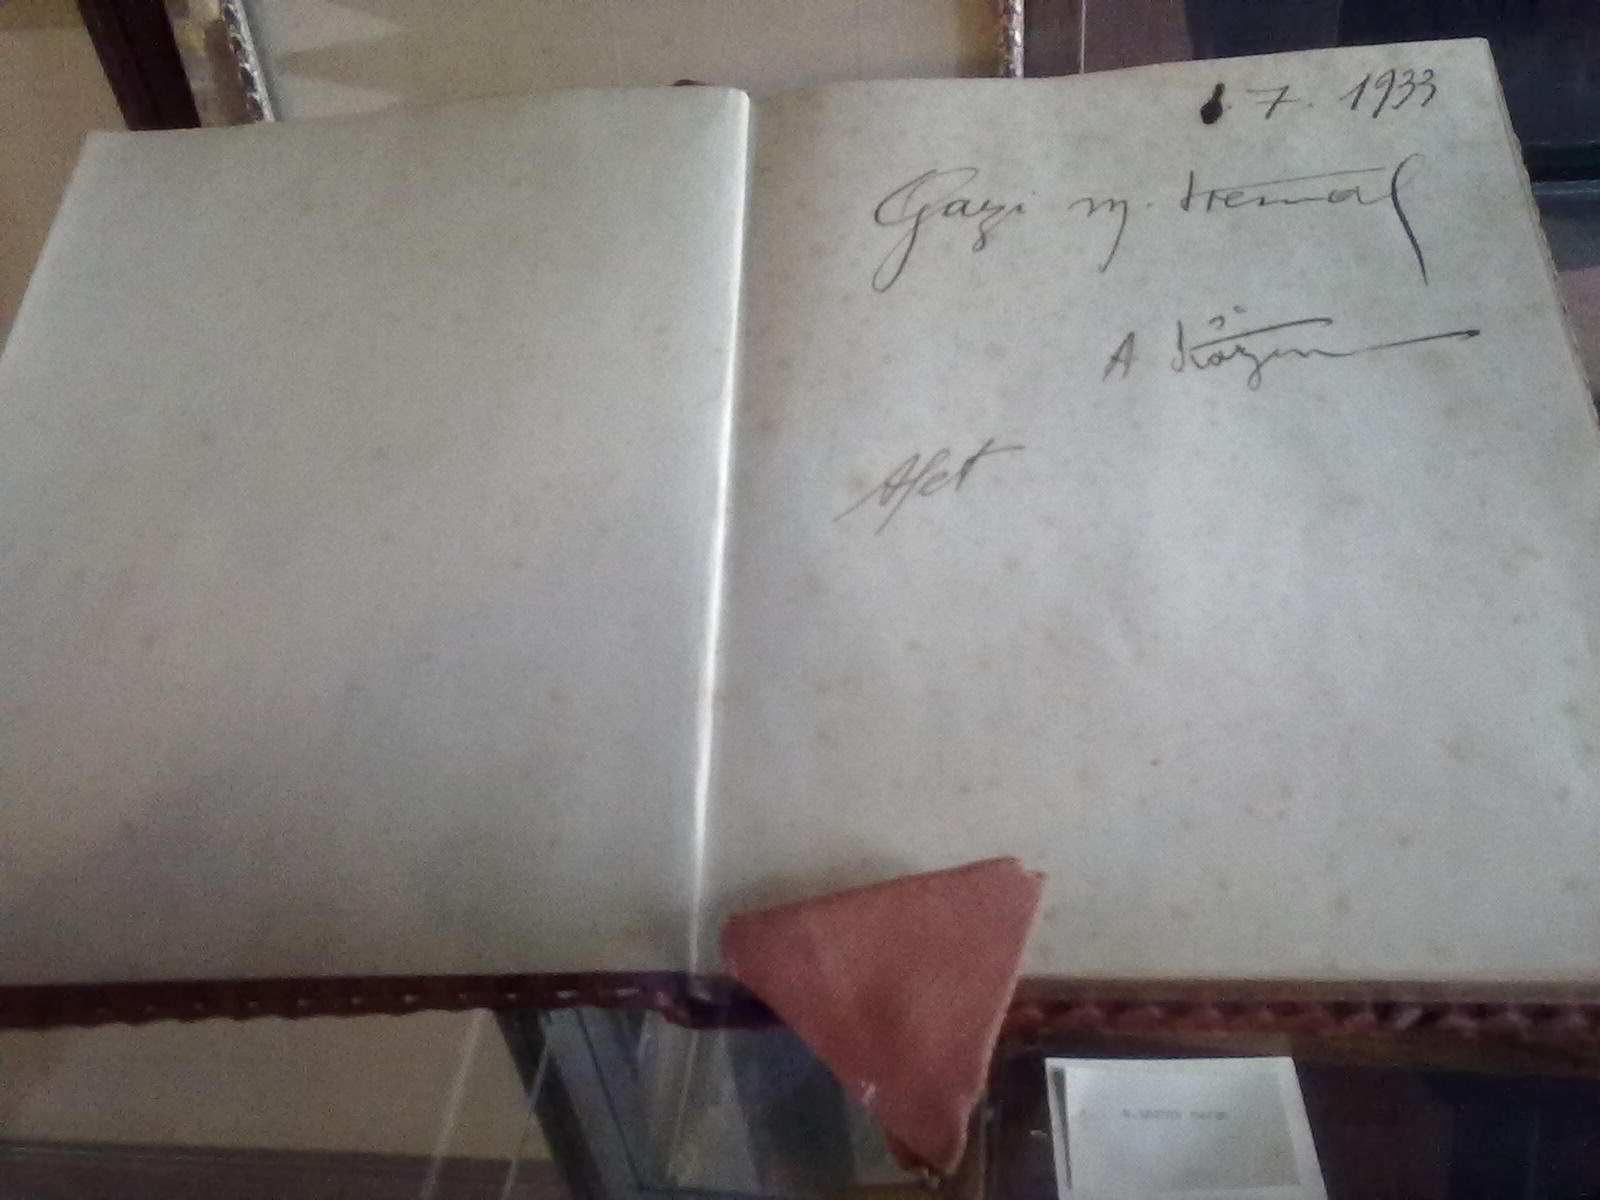 7. 1933
Gazi M. Kemal
A Kâzım
Afet